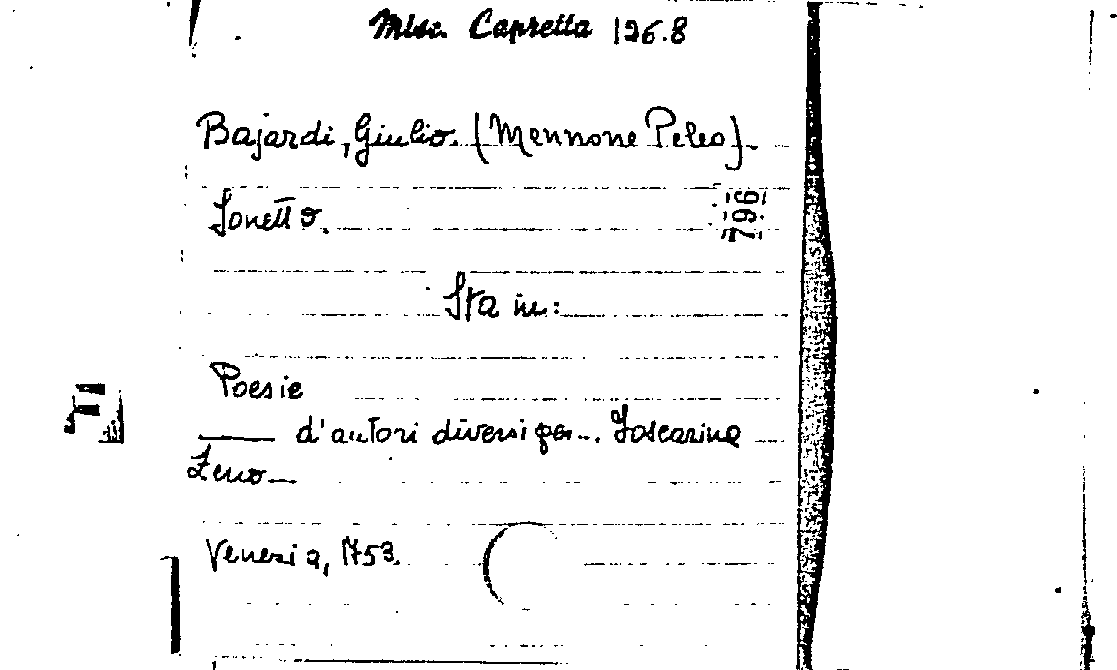 Misc. Capretta 126.8
Bajardi, Giulio. (Mennone Peleo).
Sonetto.
796
Sta in:
Poesie
——— d'autori diversi per... Foscarina
Zeno
Venezia, 1753.